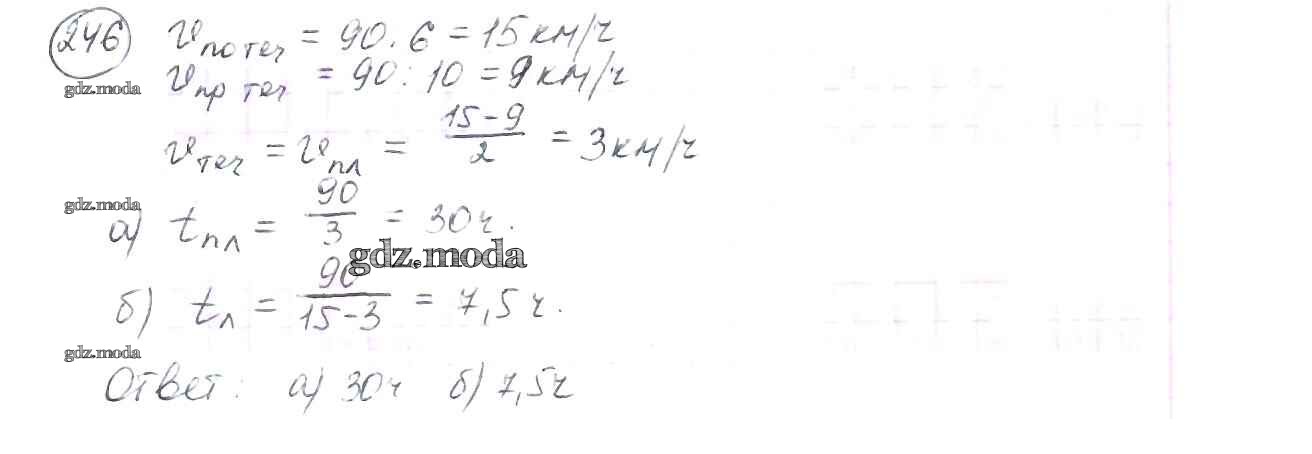 246 v по теч = 90 . 6 = 15 км/ч
gdz.moda v пр теч = 90 : 10 = 9 км/ч
v теч = v пл = (15 - 9)/2 = 3 км/ч
gdz.moda
а) t пл = 90/3 = 30 ч.
gdz.moda
б) t л = 90/(15 - 3) = 7,5 ч.
gdz.moda
Ответ: а) 30 ч б) 7,5 ч